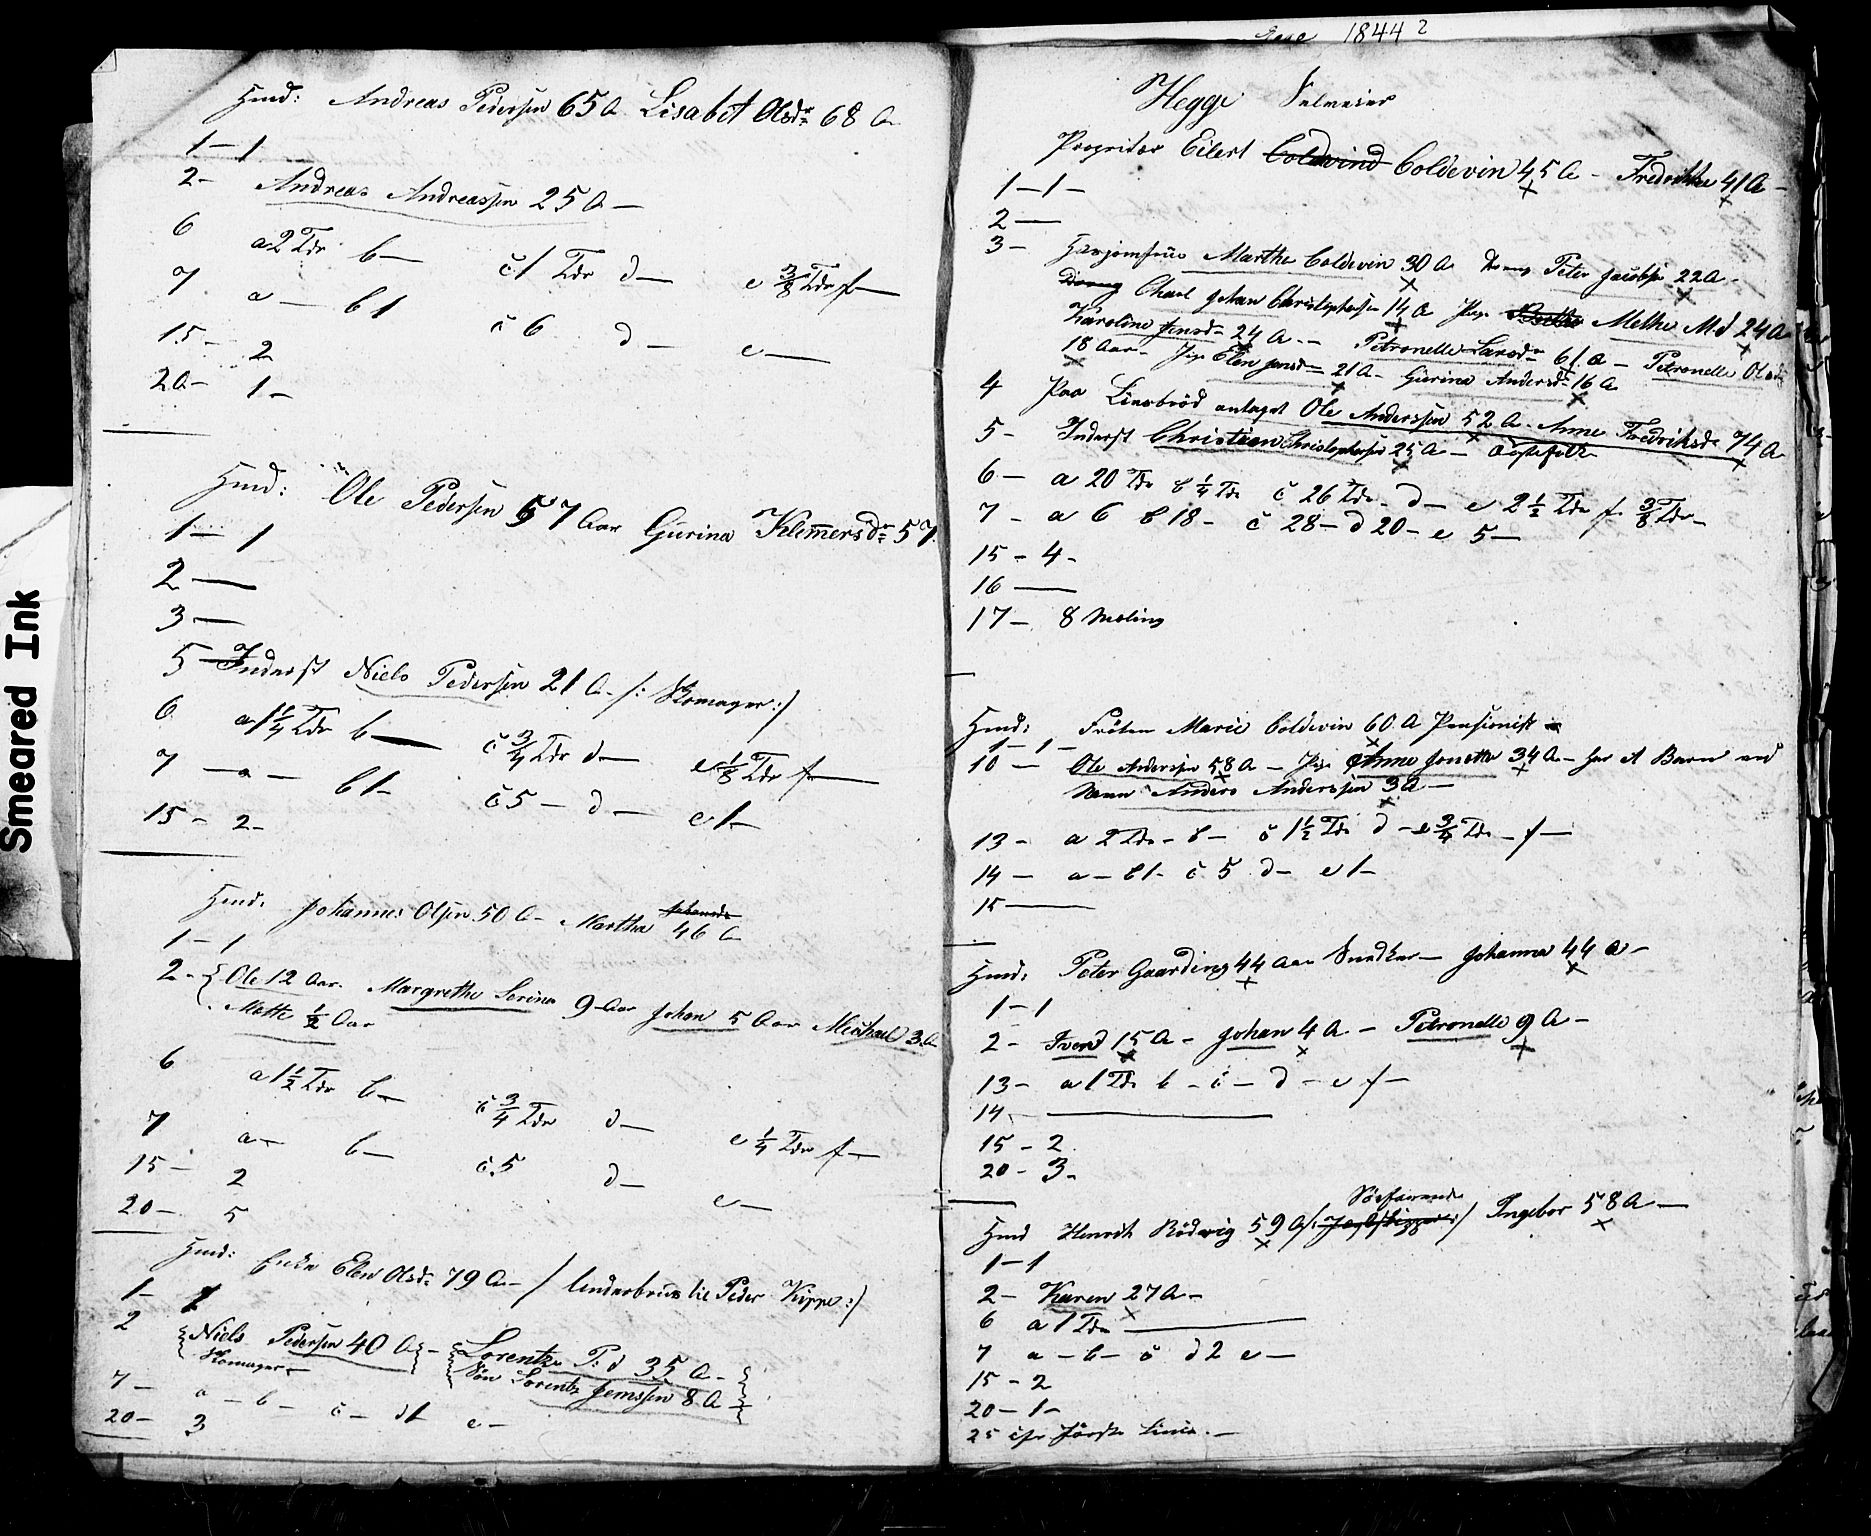 Smeared Ink
Hmd: Andreas Pedersen 65 A Lisabet Olsdr 68 A
1 - 1
2 - Andreas Andreassen 25 A -
6 a 2 Tdr b - c 1 Tdr d - e 3/8 Tdr f -
7 a - b 1 c 6 d - e -
15 - 2
20 - 1 -
Hmd: Ole Pedersen 57 Aar Gurina Klemmersdr 57
1 - 1
2 -
3 -
5 - Inderst Niels Pedersen 21 A - /: Skomager :/
6 a 1 1/4 Tdr b - c 3/4 Tdr d - e 1/8 Tdr f -
7 - a - b 1 - c 5 - d - e 1 -
15 - 2 -
Hmd: Johannes Olsen 50 A - Martha 46 A
1 - 1
2 - Ole 12 Aar. Margrethe Serina 9 Aar Johan 5 Aar Michael 3 A
Mette 1/2 Aar
6 a 1 1/2 Tdr b - c 3/4 Tdr d - e 1/4 Tdr f -
7 a - b - c 5 d - e -
15 - 2
20 - 5
Hmd: Enke Elen Olsdr 79 A - / Underbrug til Peder Kippe :/
1 - 1
2 Niels Pedersen 40 A - Lorentze P: d 35 A -
Skomager - Søn Lorentz Jemssen 8 A -
7 - a - b - c - d 1 e -
20 - 3
1844 2
Hegge
Propritær Eilert Coldevind Coldevin 45 A - Fredrikke 41 A -
1 - 1 -
2 -
3 - Huusjomfrue Marthe Coldevin 30 A Dreng Peter Jacobsen 22 A -
Dreng Charl Johan Christophersen 14 A Pige Methe M d 24 A
Karoline Jensdr 24 A - Petronelle Larsdr 61 A - Petronelle Olsdr
18 Aar - Pige Elen Jensdr 21 A - Gurina Andersdr 16 A
4 Paa Livsbrød antaget Ole Anderssen 52 A Anne Fredriksdr 74 A
5 - Inderst Christian Christophersen 25 A -
6 - a 20 Tdr b 1/4 Tdr c 26 Tdr d - e 2 1/2 Tdr f 3/8 Tdr -
7 - a 6 b 18 - c 28 - d 20 - e 5 -
15 - 4 -
16 -
17 - 8 Mæling
Hmd: Frøken Marie Coldevin 60 A Pensionist
1 - 1 -
10 - Ole Anderssen 58 A - Pige Anne Jonetta 34 A - har et Barn ved
Navn Anders Anderssen 3 A -
13 - a 2 Tdr - b - c 1 1/2 Tdr d - e 3/4 Tdr - f -
14 - a - b 1 - c 5 d - e 1 -
15 -
Hmd: Peter Gaarding 44 Aar Snedker - Johanna 44 A -
1 - 1
2 - Iver 15 A - Johan 4 A - Petronelle 9 A -
13 - a 1 Tdr b - c - d - e f -
14 -
15 - 2
20 - 3 -
Søefarende
Hmd Henrik Rødwig 59 A /: Jægtskipper :/ Ingebor 58 A -
1 - 1
2 - Karen 27 A -
6 a 1 Tdr -
7 a - b - c d 2 e -
15 - 2
20 - 1 -
25 cfr første Linie. -